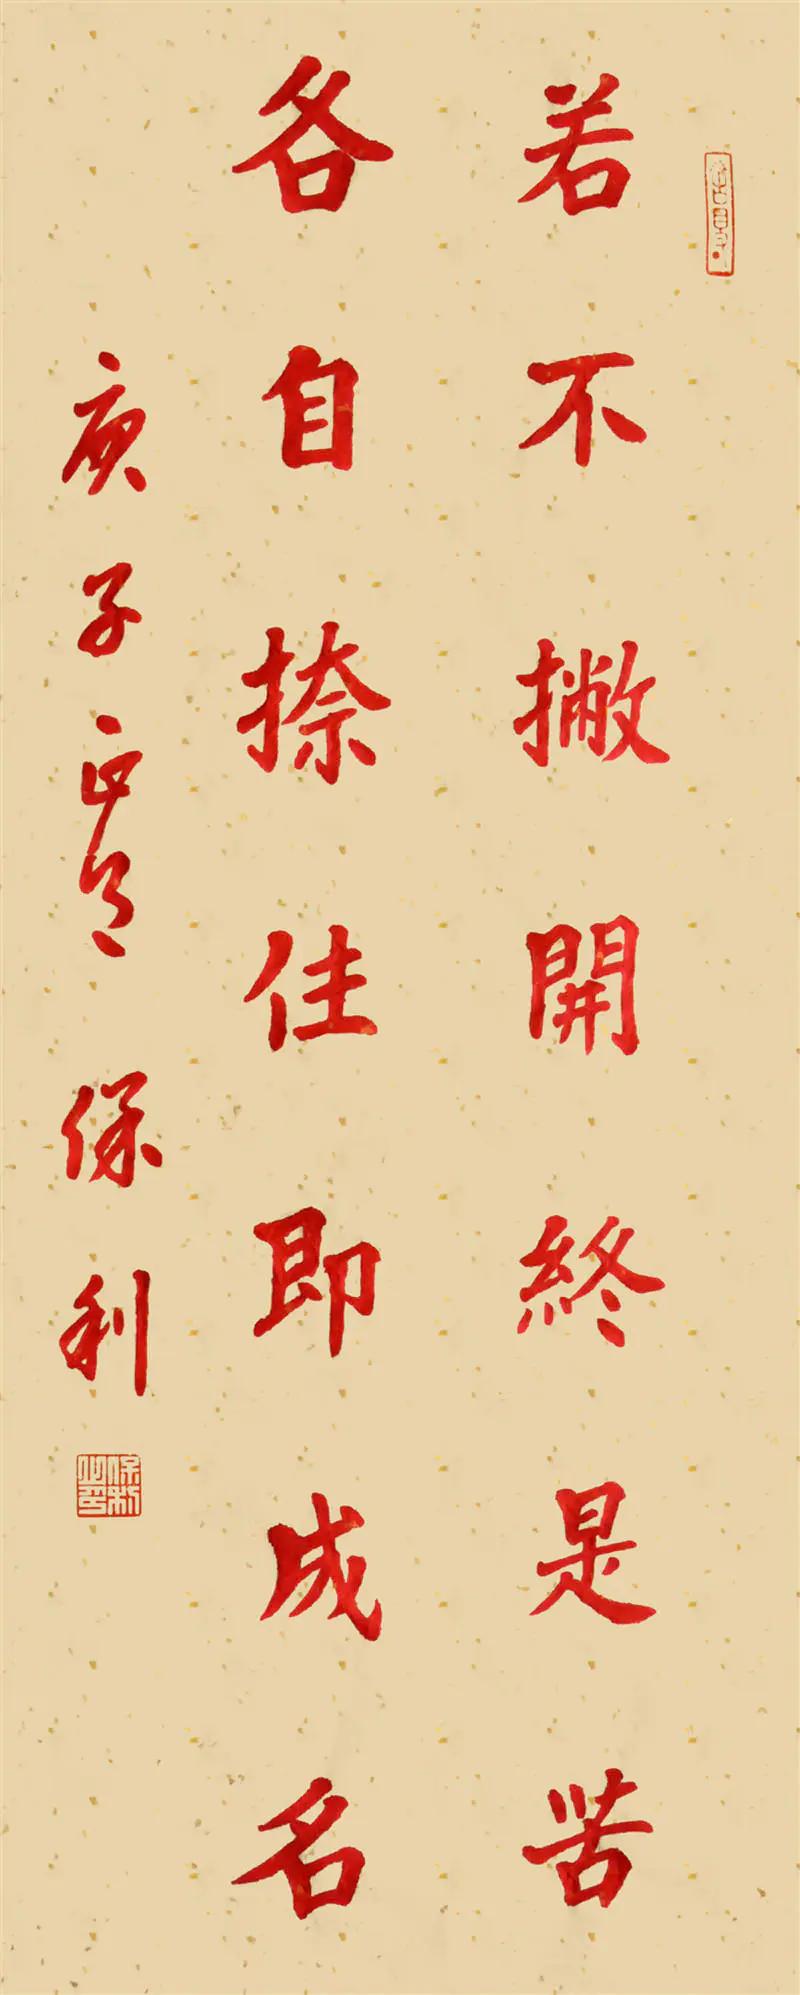 若不撇開終是苦
各自捺佳即成名
庚子 保利
保利之印